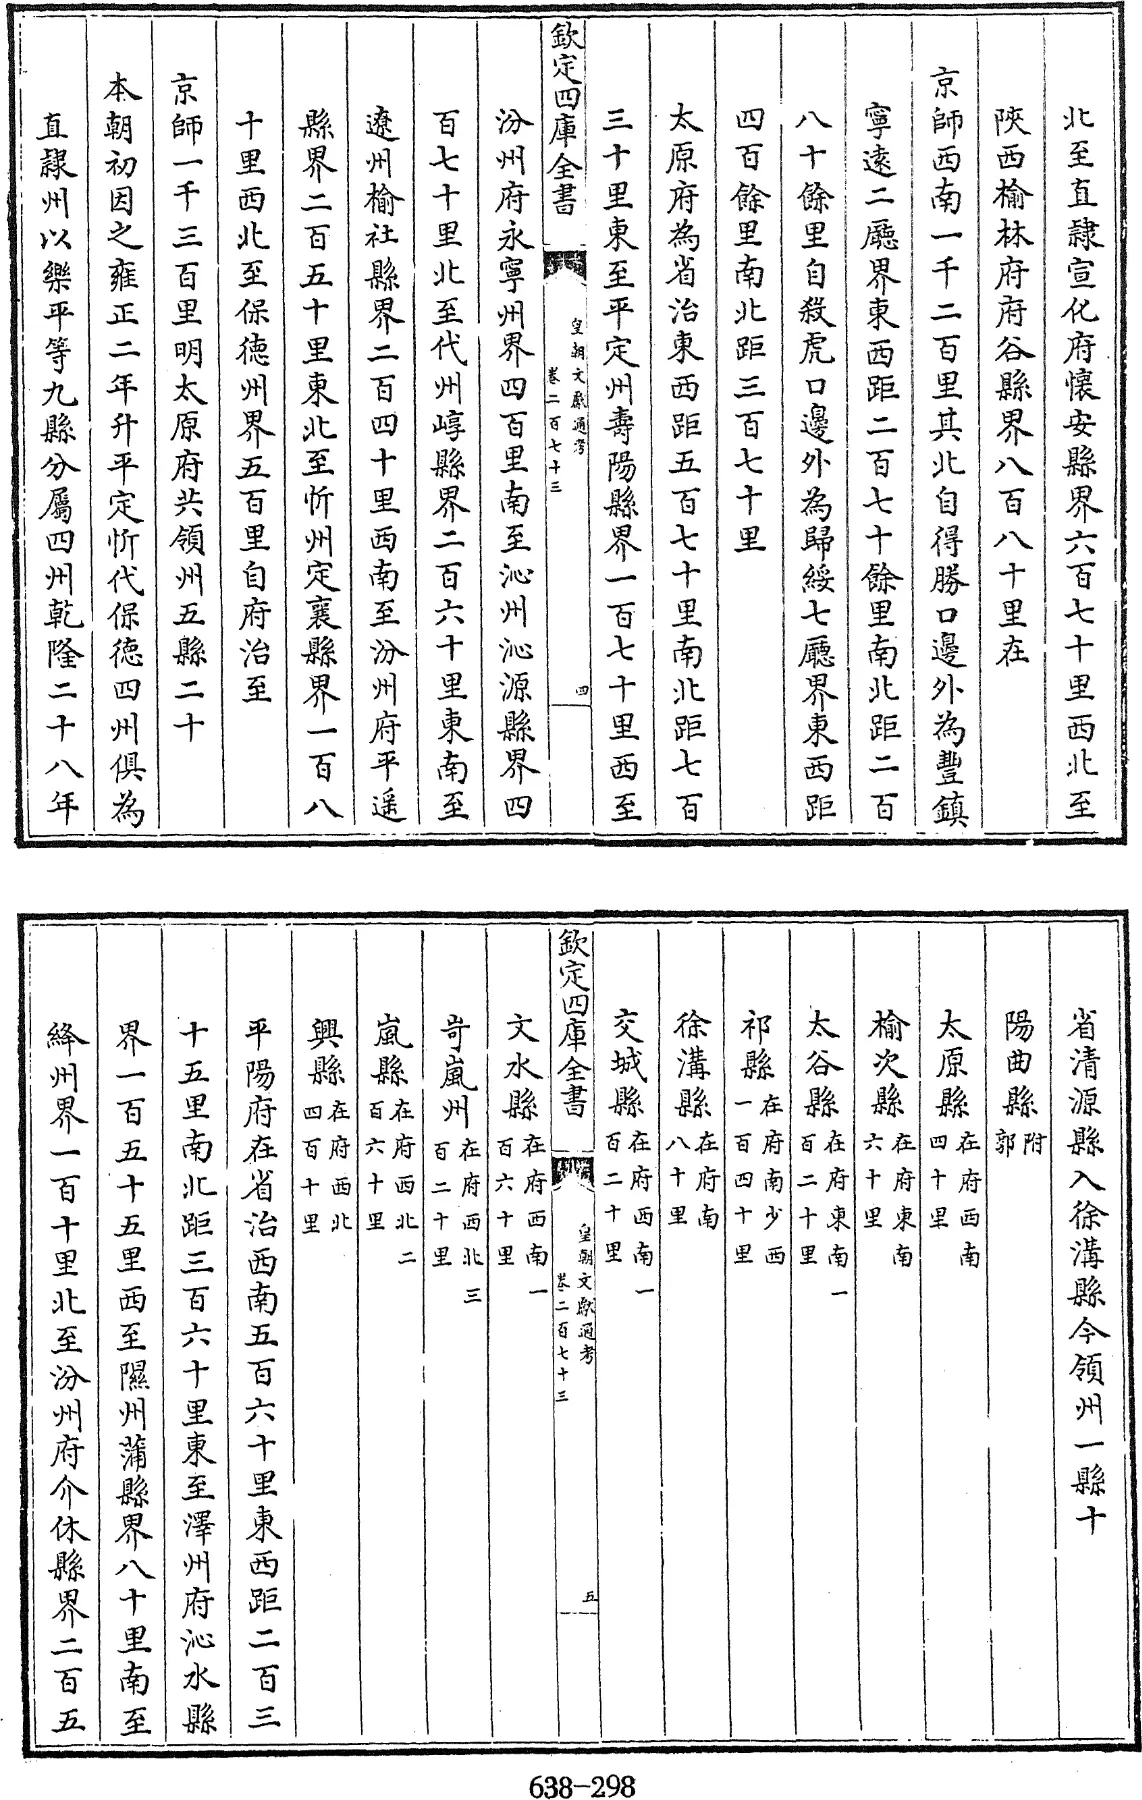 北至直隷宣化府懷安縣界六百七十里西北至
陜西榆林府府谷縣界八百八十里在
京師西南一千二百里其北自得勝口邊外為豐鎮
寧遠二廳界東西距二百七十餘里南北距二百
八十餘里自殺虎口邊外為歸綏七廳界東西距
四百餘里南北距三百七十里
太原府為省治東西距五百七十里南北距七百
三十里東至平定州壽陽縣界一百七十里西至
欽定四庫全書
皇朝文獻通考
卷二百七十三
四
汾州府永寧州界四百里南至沁州沁源縣界四
百七十里北至代州崞縣界二百六十里東南至
遼州榆社縣界二百四十里西南至汾州府平遥
縣界二百五十里東北至忻州定襄縣界一百八
十里西北至保德州界五百里自府治至
京師一千三百里明太原府共領州五縣二十
本朝初因之雍正二年升平定忻代保德四州俱為
直隷州以樂平等九縣分屬四州乾隆二十八年
省清源縣入徐溝縣今領州一縣十
陽曲縣附郭
太原縣在府西南四十里
榆次縣在府東南六十里
太谷縣在府東南一百二十里
祁縣在府南少西一百四十里
徐溝縣在府南八十里
交城縣在府西南一百二十里
欽定四庫全書
皇朝文獻通考
卷二百七十三
五
文水縣在府西南一百六十里
岢嵐州在府西北三百二十里
嵐縣在府西北二百六十里
興縣在府西北四百十里
平陽府在省治西南五百六十里東西距二百三
十五里南北距三百六十里東至澤州府沁水縣
界一百五十五里西至隰州蒲縣界八十里南至
絳州界一百十里北至汾州府介休縣界二百五
638-298